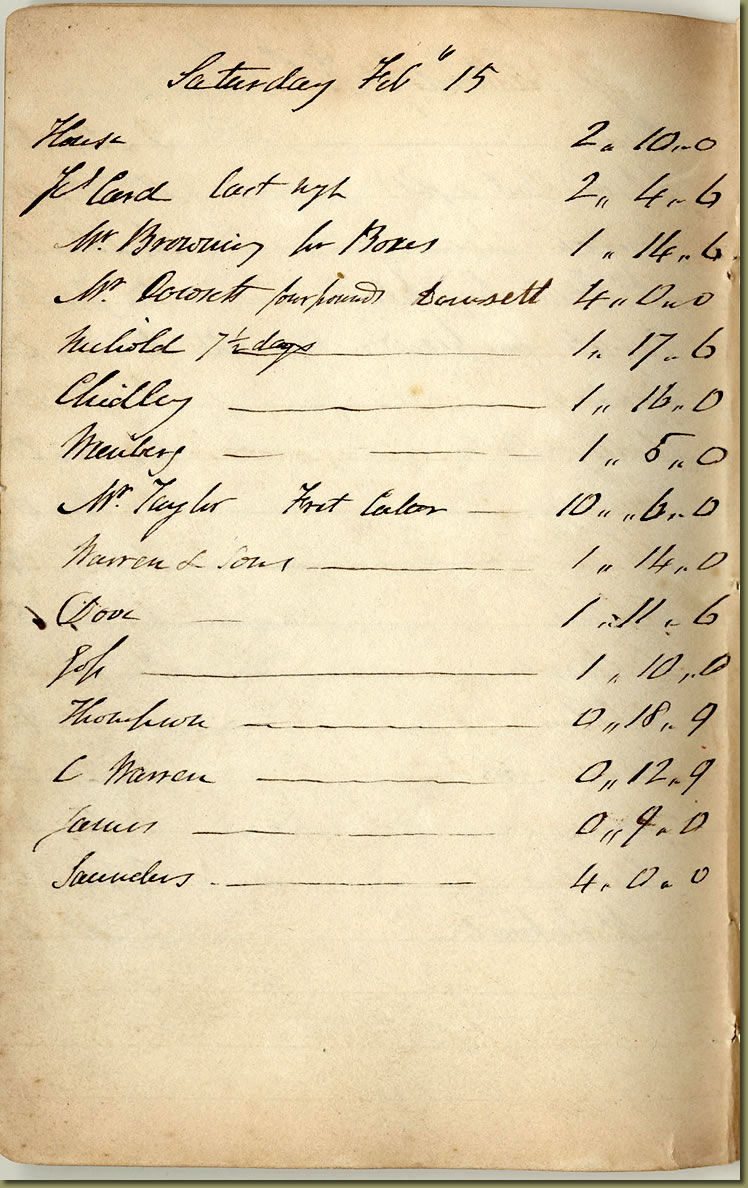 Saturday Feb " 15
House 2 " 10 " 0
Card last 2 " 4 " 6
Mr. Browning for Boxes 1 " 14 " 6
Mr. Dowsett four pounds Dowsett 4 " 0 " 0
7½ days 1 " 17 " 6
Chidley 1 " 16 " 0
1 " 5 " 0
Mr. Taylor Fret Cutter 10 " 6 " 0
Warren & Sons 1 " 14 " 0
Dove 1 " 11 " 6
1 " 10 " 0
Thompson 0 " 18 " 9
C Warren 0 " 12 " 9
James 0 " 9 " 0
Saunders 4 " 0 " 0